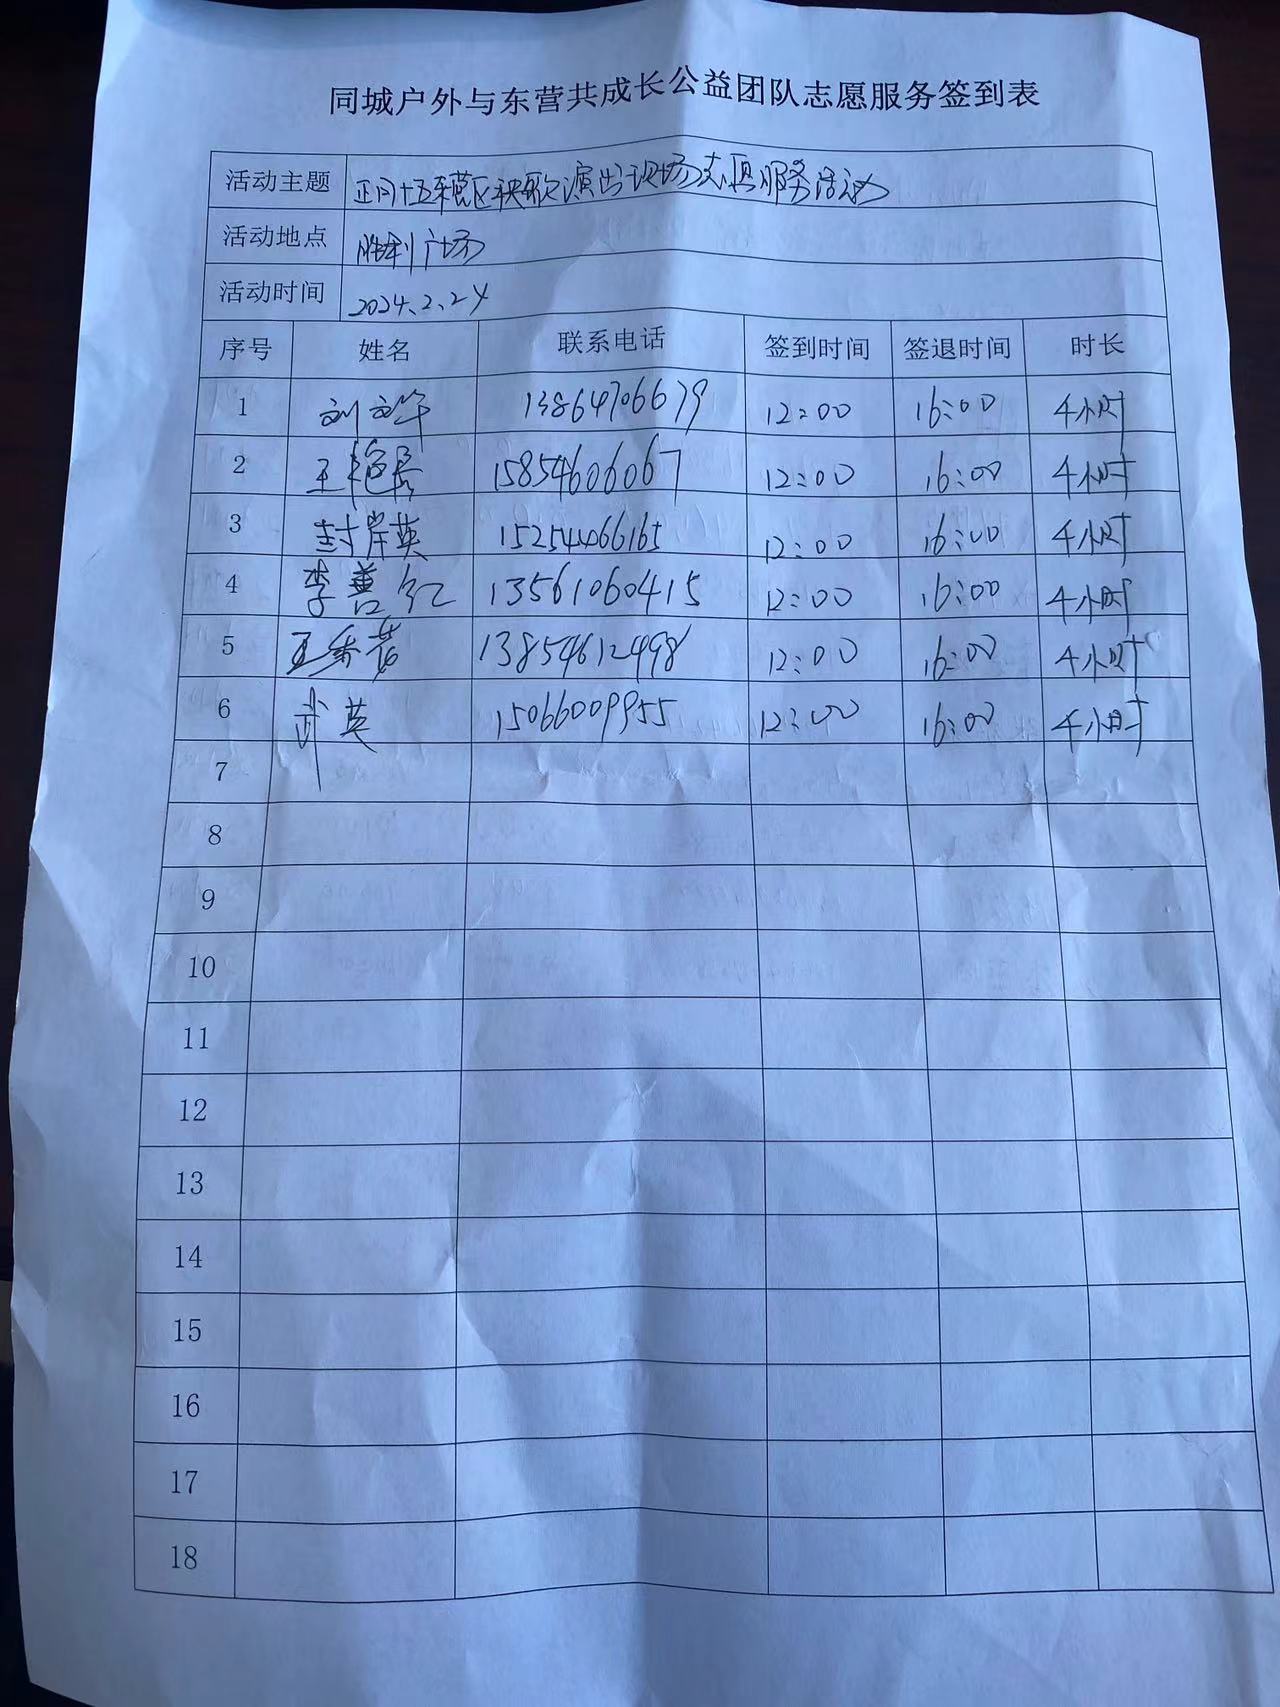 同城户外与东营共成长公益团队志愿服务签到表
活动主题 正月十五东营区秧歌演出现场志愿服务活动
活动地点 胜利广场
活动时间 2024.2.24
序号 姓名 联系电话 签到时间 签退时间 时长
1 刘文华 13864706679 12:00 16:00 4小时
2 王艳 15854606067 12:00 16:00 4小时
3 封岸英 15254066165 12:00 16:00 4小时
4 李善红 13561060415 12:00 16:00 4小时
5 王秀芳 13854612498 12:00 16:00 4小时
6 武英 15066009955 12:00 16:00 4小时
7
8
9
10
11
12
13
14
15
16
17
18